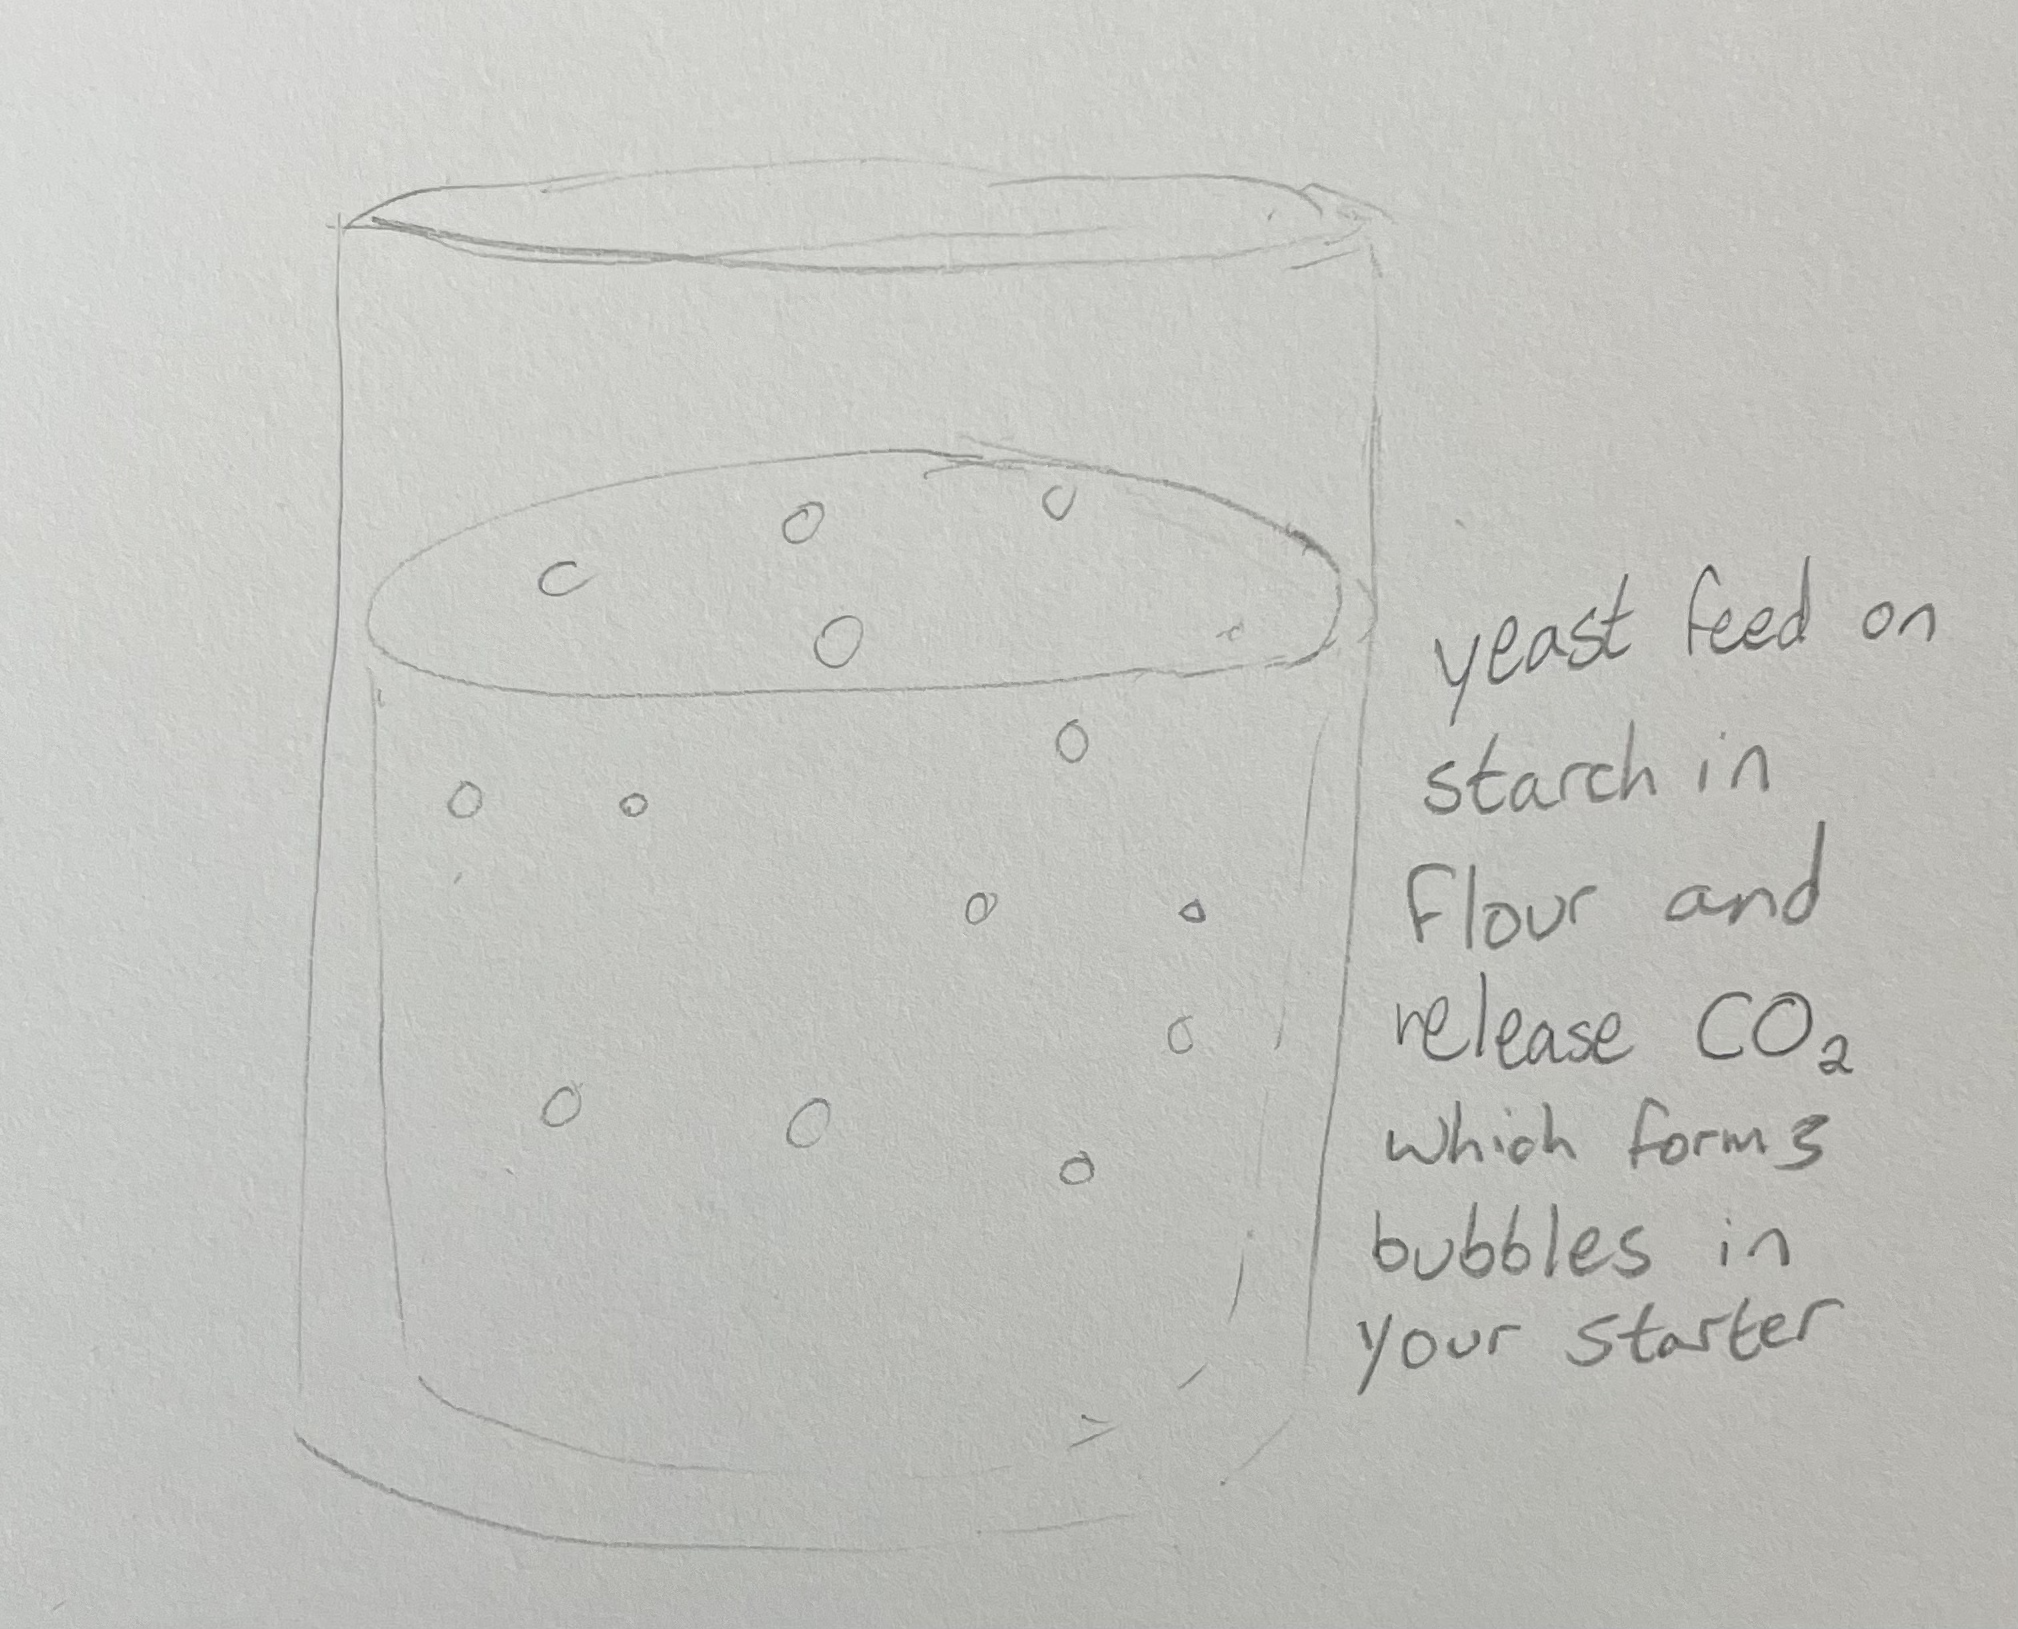 yeast feed on
starch in
flour and
release CO₂
which forms
bubbles in
your starter